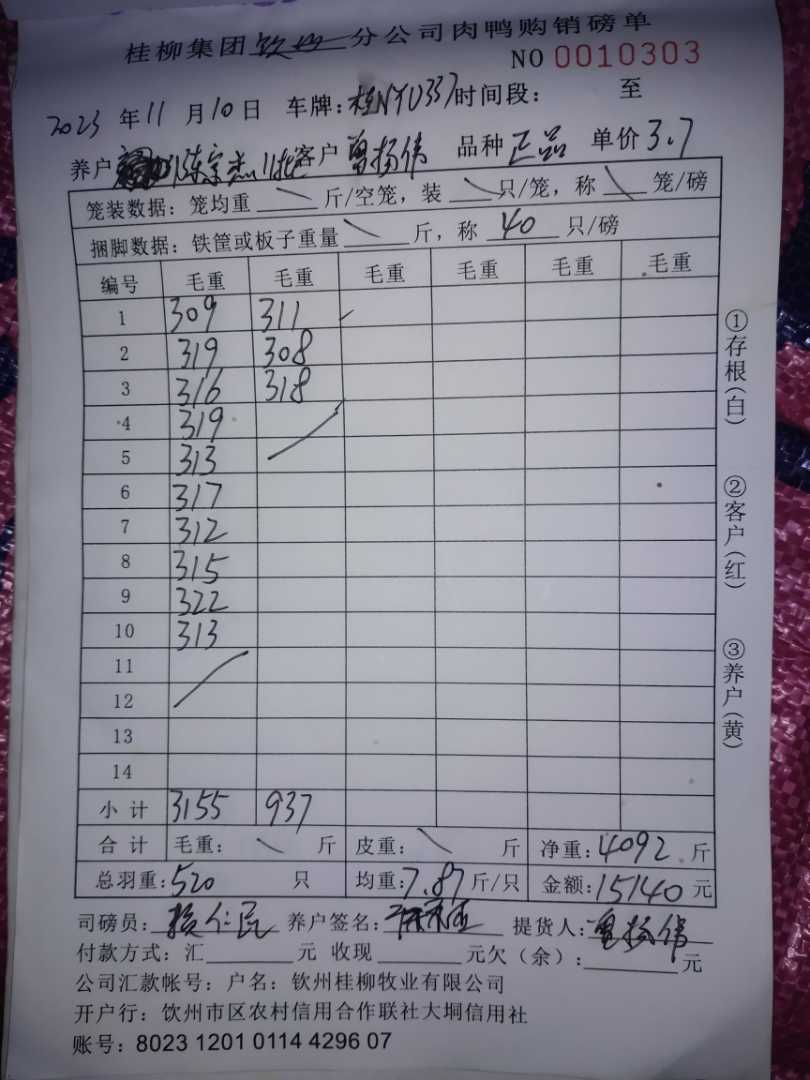 桂柳集团钦州分公司肉鸭购销磅单
NO 0010303
2023 年 11 月 10 日 车牌: 桂NYU337 时间段: 至
养户 陈宗杰 11批 客户 曾扬伟 品种 正品 单价 3.7
笼装数据: 笼均重 \ 斤/空笼, 装 \ 只/笼, 称 \ 笼/磅
捆脚数据: 铁筐或板子重量 \ 斤, 称 40 只/磅
编号 毛重 毛重 毛重 毛重 毛重 毛重
1 309 311
2 319 308
3 316 318
4 319
5 313
6 317
7 312
8 315
9 322
10 313
11
12
13
14
小计 3155 937
合计 毛重: \ 斤 皮重: \ 斤 净重: 4092 斤
总羽重: 520 只 均重: 7.87 斤/只 金额: 15140 元
司磅员: 仁民 养户签名: 提货人: 曾扬伟
付款方式: 汇 元 收现 元欠(余): 元
公司汇款帐号: 户名: 钦州桂柳牧业有限公司
开户行: 饮州市区农村信用合作联社大垌信用社
账号: 8023 1201 0114 4296 07
①存根(白)
②客户(红)
③养户(黄)